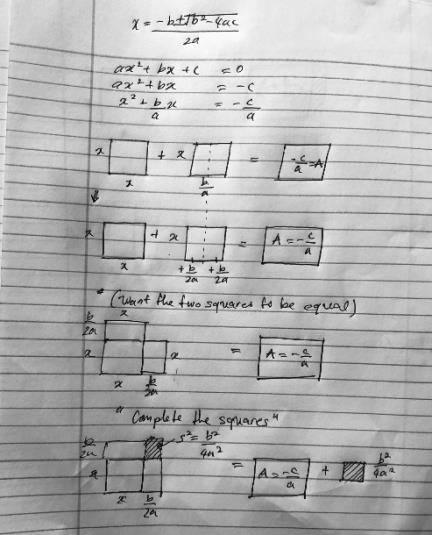 x = -b±√b²-4ac
2a
ax² + bx + c = 0
ax² + bx = -c
x² + b/a x = -c/a
x + x = -c/a = A
x b/a
x + x = A = -c/a
x +b/2a +b/2a
(Want the two squares to be equal)
b/2a x
x x = A = -c/a
x b/2a
" Complete the squares "
b/2a s² = b²/4a²
x = A = -c/a + b²/4a²
x b/2a